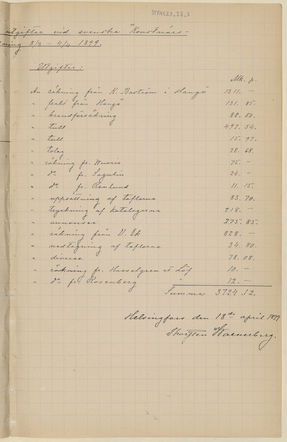 utgifter vid svenska "Konstnärs-
ning 3/3 - 4/4 1899.
Utgifter:
Mk. p.
An räkning från K. Boström i Hangö 1311. —
" frakt från Hangö 131. 05.
" brandförsäkring
" tull 497. 54.
" tull 15. 97.
" tolag 28. 68.
" räkning fr. 75. —
" do fr. 24. —
" do fr. 11. 15.
" uppställning af taflorna 83. 70.
" tryckning af katalogerna 218. —
" annonser 275. 85.
" räkning från 828. —
" nedtagning af taflorna 34. 80.
" diverse 78. 08.
" räkning fr. Hasselgren et Löf 10. —
" do fr. Rosenberg 12. —
Summa 3724. 52.
Helsingfors den 18de april 1899